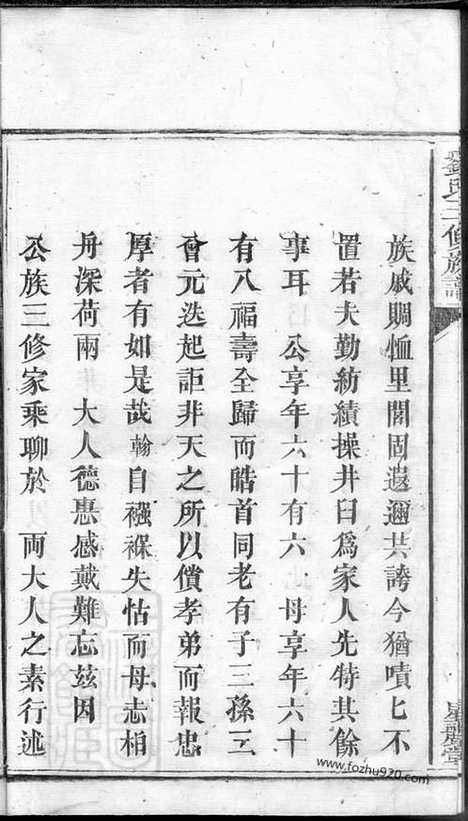 族戚賙恤里閭固遐邇共誇今猶嘖匕不
置若夫勤紡績操井臼爲家人先特其餘
事耳　公享年六十有六　母享年六十
有八福壽全歸而皓首同老有子三孫三
會元迭起詎非天之所以償孝弟而報忠
厚者有如是哉翰自襁褓失怙而母志相
舟深荷兩　大人德惠感戴難忘兹因
公族三修家乘聊於　兩大人之素行述
氏三修族譜
www.fozhu920.com